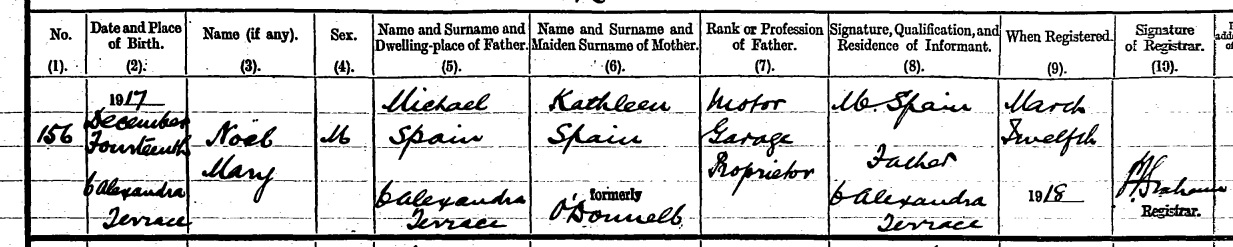 No. (1).
Date and Place of Birth. (2).
Name (if any). (3).
Sex. (4).
Name and Surname and Dwelling-place of Father. (5).
Name and Surname and Maiden Surname of Mother. (6).
Rank or Profession of Father. (7).
Signature, Qualification, and Residence of Informant. (8).
When Registered. (9).
Signature of Registrar. (10).
156
1917
December
Fourteenth
6 Alexandra
Terrace
Noel
Mary
M
Michael
Spain
6 Alexandra
Terrace
Kathleen
Spain
formerly
O'Donnell
Motor
Garage
Proprietor
M. Spain
Father
6 Alexandra
Terrace
March
Twelfth
1918
Graham
Registrar.